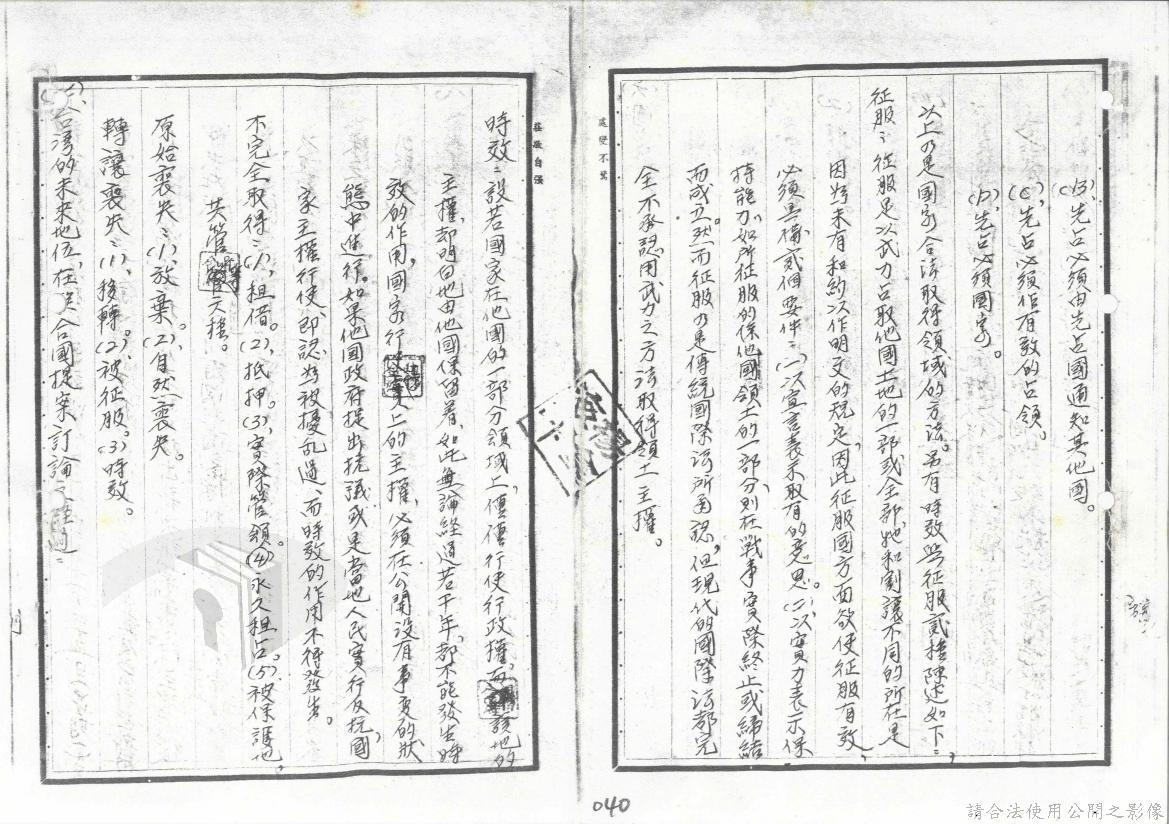 (B)、先占必須由先占國通知其他國。
(C)、先占必須作有效的占領。
(D)、先占必須國家。
以上乃是國家合法取得領域的方法。另有時效與征服貳種陳述如下:
征服:征服是以武力占取他國土地的一部或全部,牠和割讓不同的所在是
因為未有和約以作明文的規定,因此征服國方面欲使征服有效,
必須具備貳個要件:(一)、以宣言表示取有的意思。(二)、以實力表示保
持能力,如所征服的係他國領土的一部分,則在戰事實際終止或締結
而成立。然而征服乃是傳統國際法所承認,但現代的國際法都完
全不承認用武力之方法取得領土主權。
處變不驚
莊敬自強
時效:設若國家在他國的一部分領域上,僅僅行使行政權,而該地的
主權,却明白地由他國保留着,如此無論經過若干年,都不能發生時
效的作用,國家行使全實上的主權,必須在公開沒有事変的狀
態中進行。如果他國政府提出抗議或是當地人民實行反抗國
家主權行使,即認為被擾乱過,而時效的作用不得發生。
不完全取得:(1)、租借。(2)、抵押。(3)、實際管領。(4)永久租占。(5)、被保護地,
共管
原始喪失:(1)、放棄。(2)、自然喪失。
轉讓喪失:(1)、移轉。(2)被征服。(3)時效。
台湾的未來地位,在 合國提案討論之 過:
040
請合法使用公開之影像